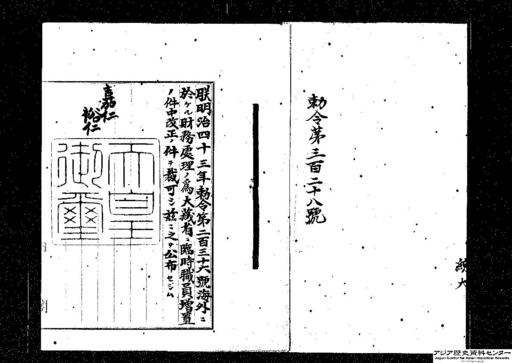 勅令第三百二十八號
朕明治四十三年勅令第二百三十六號海外ニ
於ケル財務處理ノ爲大藏省ニ臨時職員増置
ノ件中改正ノ件ヲ裁可シ茲ニ之ヲ公布セシム
嘉仁
裕仁
天皇
御璽
アジア歴史資料センター
Japan Center for Asian Historical Records